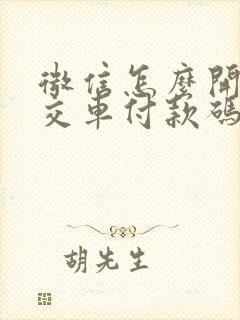 微信怎麼開
交車付款碼
胡先生